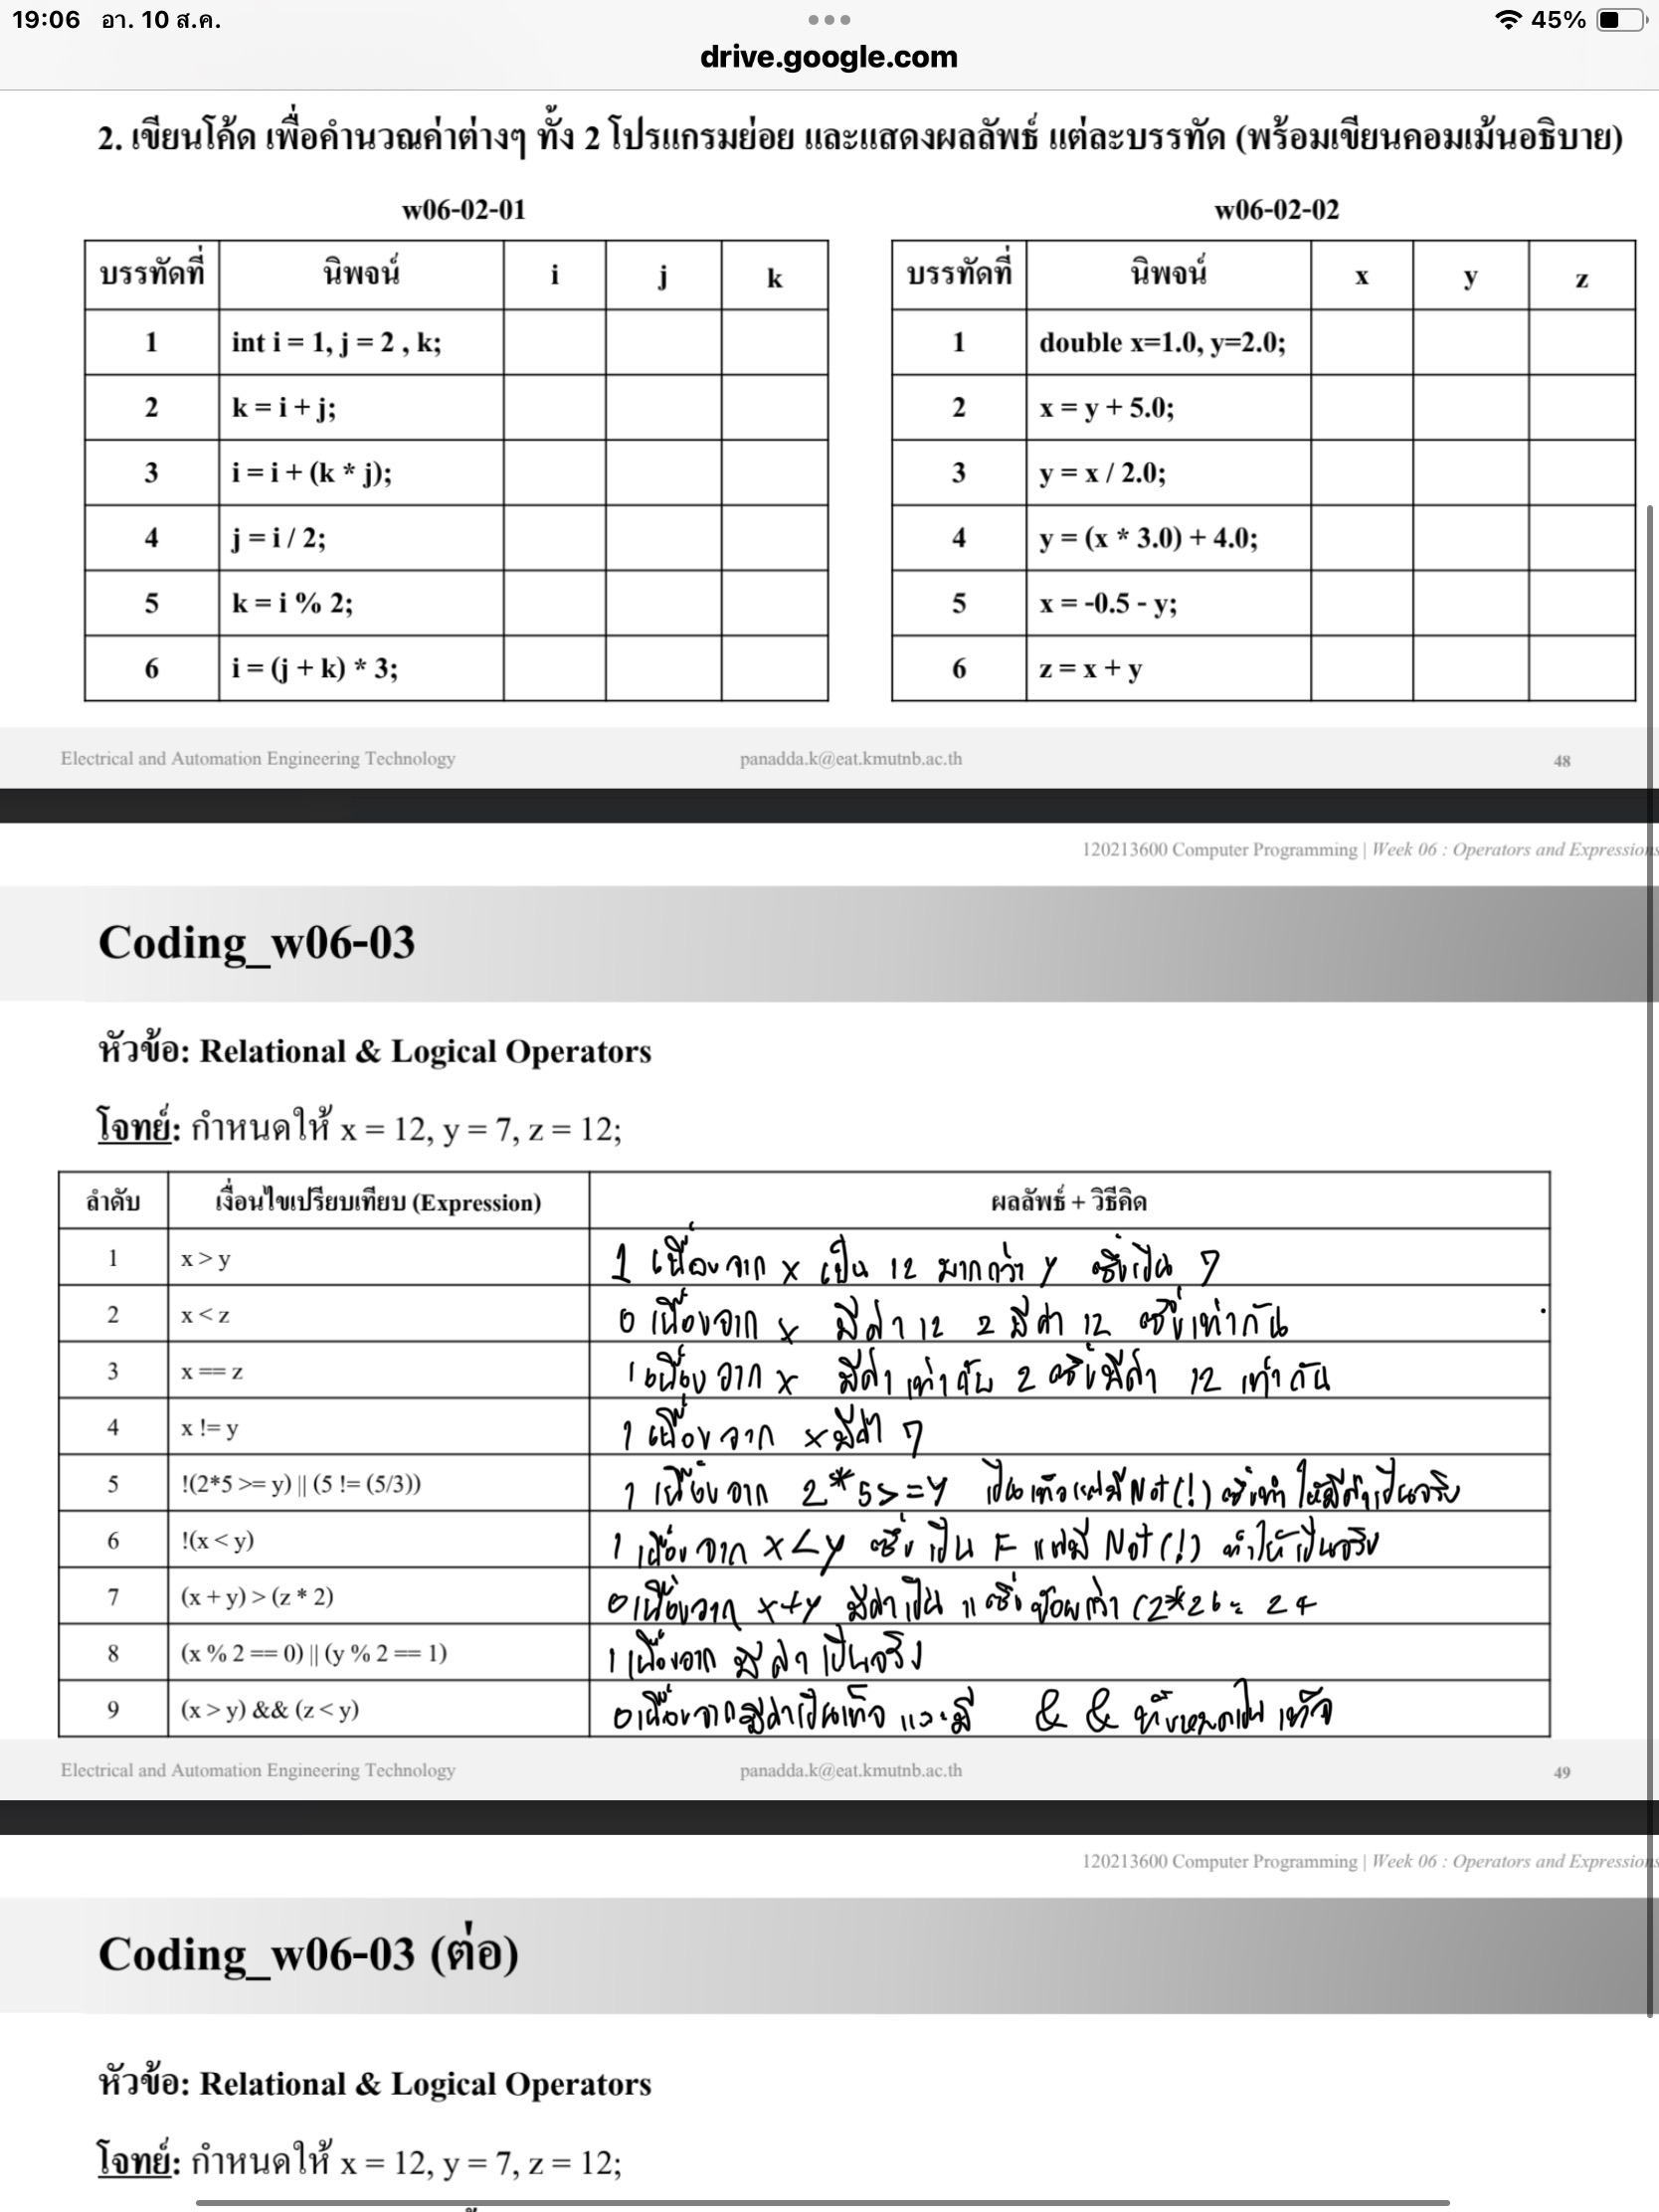 19:06 อา. 10 ส.ค.
45%
drive.google.com
2. เขียนโค้ด เพื่อคำนวณค่าต่างๆ ทั้ง 2 โปรแกรมย่อย และแสดงผลลัพธ์ แต่ละบรรทัด (พร้อมเขียนคอมเม้นอธิบาย)
w06-02-01
บรรทัดที่ นิพจน์ i j k
1 int i = 1, j = 2 , k;
2 k = i + j;
3 i = i + (k * j);
4 j = i / 2;
5 k = i % 2;
6 i = (j + k) * 3;
w06-02-02
บรรทัดที่ นิพจน์ x y z
1 double x=1.0, y=2.0;
2 x = y + 5.0;
3 y = x / 2.0;
4 y = (x * 3.0) + 4.0;
5 x = -0.5 - y;
6 z = x + y
Electrical and Automation Engineering Technology panadda.k@eat.kmutnb.ac.th 48
120213600 Computer Programming | Week 06 : Operators and Expressions
Coding_w06-03
หัวข้อ: Relational & Logical Operators
โจทย์: กำหนดให้ x = 12, y = 7, z = 12;
ลำดับ เงื่อนไขเปรียบเทียบ (Expression) ผลลัพธ์ + วิธีคิด
1 x > y 1 เนื่องจาก x เป็น 12 มากกว่า y ซึ่งเป็น 7
2 x < z 0 เนื่องจาก x มีค่า 12 z มีค่า 12 ซึ่งเท่ากัน
3 x == z 1 เนื่องจาก x มีค่าเท่ากับ z ซึ่งมีค่า 12 เท่ากัน
4 x != y 1 เนื่องจาก x มีค่า 7
5 !(2*5 >= y) || (5 != (5/3)) 1 เนื่องจาก 2*5>=y เป็นเท็จแต่มี Not(!) ซึ่งทำให้มีค่าเป็นจริง
6 !(x < y) 1 เนื่องจาก x<y ซึ่งเป็น F แต่มี Not(!) ทำให้เป็นจริง
7 (x + y) > (z * 2) 0 เนื่องจาก x+y มีค่าเป็น 11 ซึ่งน้อยกว่า = 24
8 (x % 2 == 0) || (y % 2 == 1) 1 เนื่องจาก มีค่าเป็นจริง
9 (x > y) && (z < y) 0 เนื่องจากมีค่าเป็นเท็จ และมี && ทั้งหมดเป็นเท็จ
Electrical and Automation Engineering Technology panadda.k@eat.kmutnb.ac.th 49
120213600 Computer Programming | Week 06 : Operators and Expressions
Coding_w06-03 (ต่อ)
หัวข้อ: Relational & Logical Operators
โจทย์: กำหนดให้ x = 12, y = 7, z = 12;